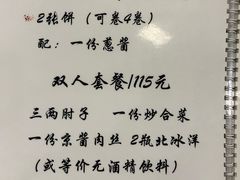 2张饼（可卷4卷）
配：一份葱酱
双人套餐/115元
三两肘子 一份炒合菜
一份京酱肉丝 2瓶北冰洋
（或等价无酒精饮料）